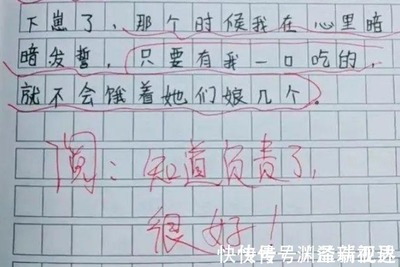 下崽了，那个时候我在心里暗
暗发誓，只要有我一口吃的，
就不会饿着她们娘几个。
阅：知道负责了，
很好！
快传号